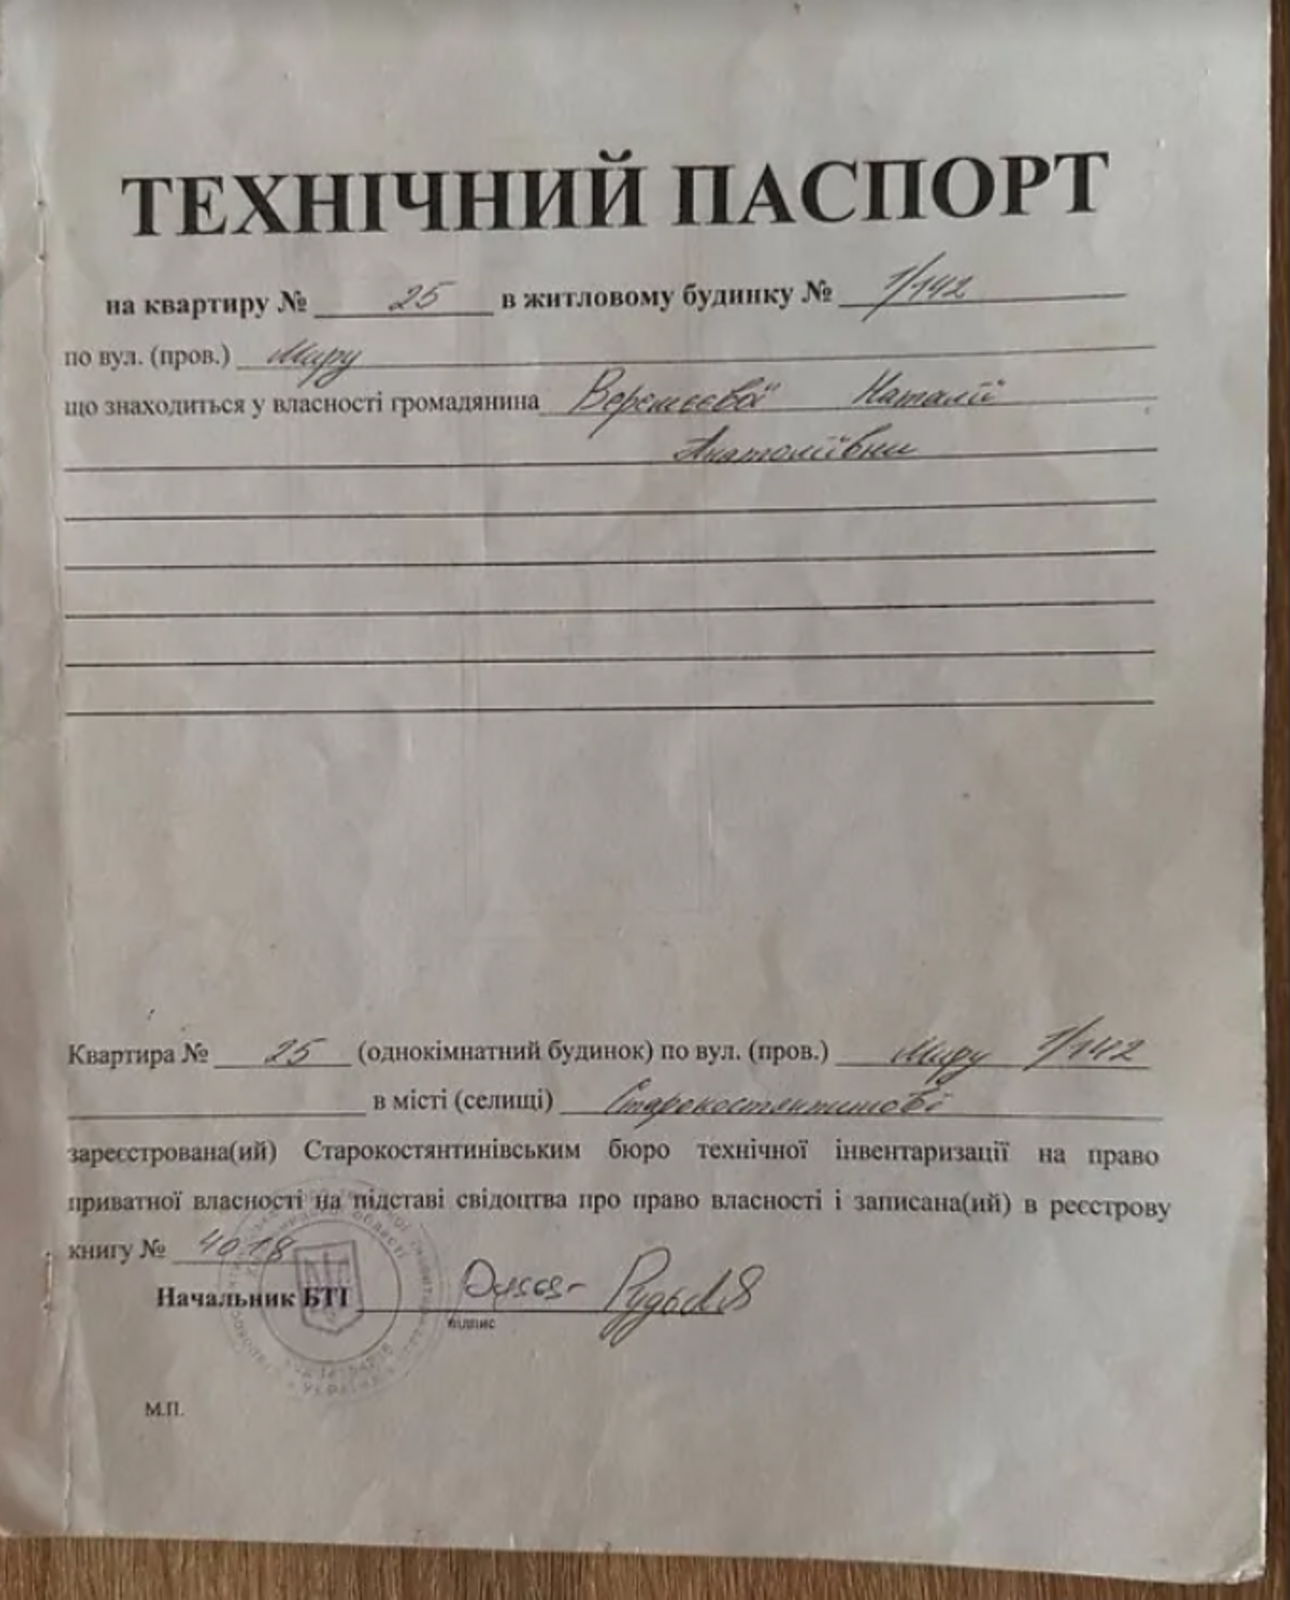 ТЕХНІЧНИЙ ПАСПОРТ
на квартиру № 25 в житловому будинку № 1/142
по вул. (пров.) Миру
що знаходиться у власності громадянина Веремеєвої Наталії
Анатоліївни
Квартира № 25 (однокімнатний будинок) по вул. (пров.) Миру 1/142
в місті (селищі) Старокостянтинові
зареєстрована(ий) Старокостянтинівським бюро технічної інвентаризації на право
приватної власності на підставі свідоцтва про право власності і записана(ий) в реєстрову
книгу № 4018
Начальник БТІ
підпис
М.П.